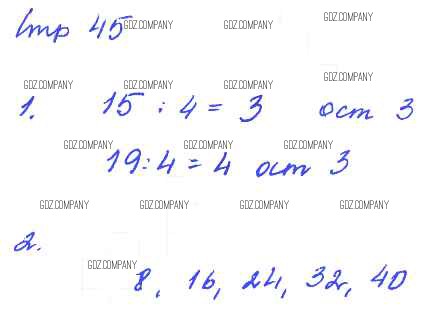 Стр 45
GDZ.COMPANY GDZ.COMPANY GDZ.COMPANY
GDZ.COMPANY GDZ.COMPANY GDZ.COMPANY GDZ.COMPANY
1. 15 : 4 = 3 ост 3
GDZ.COMPANY GDZ.COMPANY GDZ.COMPANY
19 : 4 = 4 ост 3
GDZ.COMPANY GDZ.COMPANY GDZ.COMPANY GDZ.COMPANY
2.
GDZ.COMPANY
8, 16, 24, 32, 40